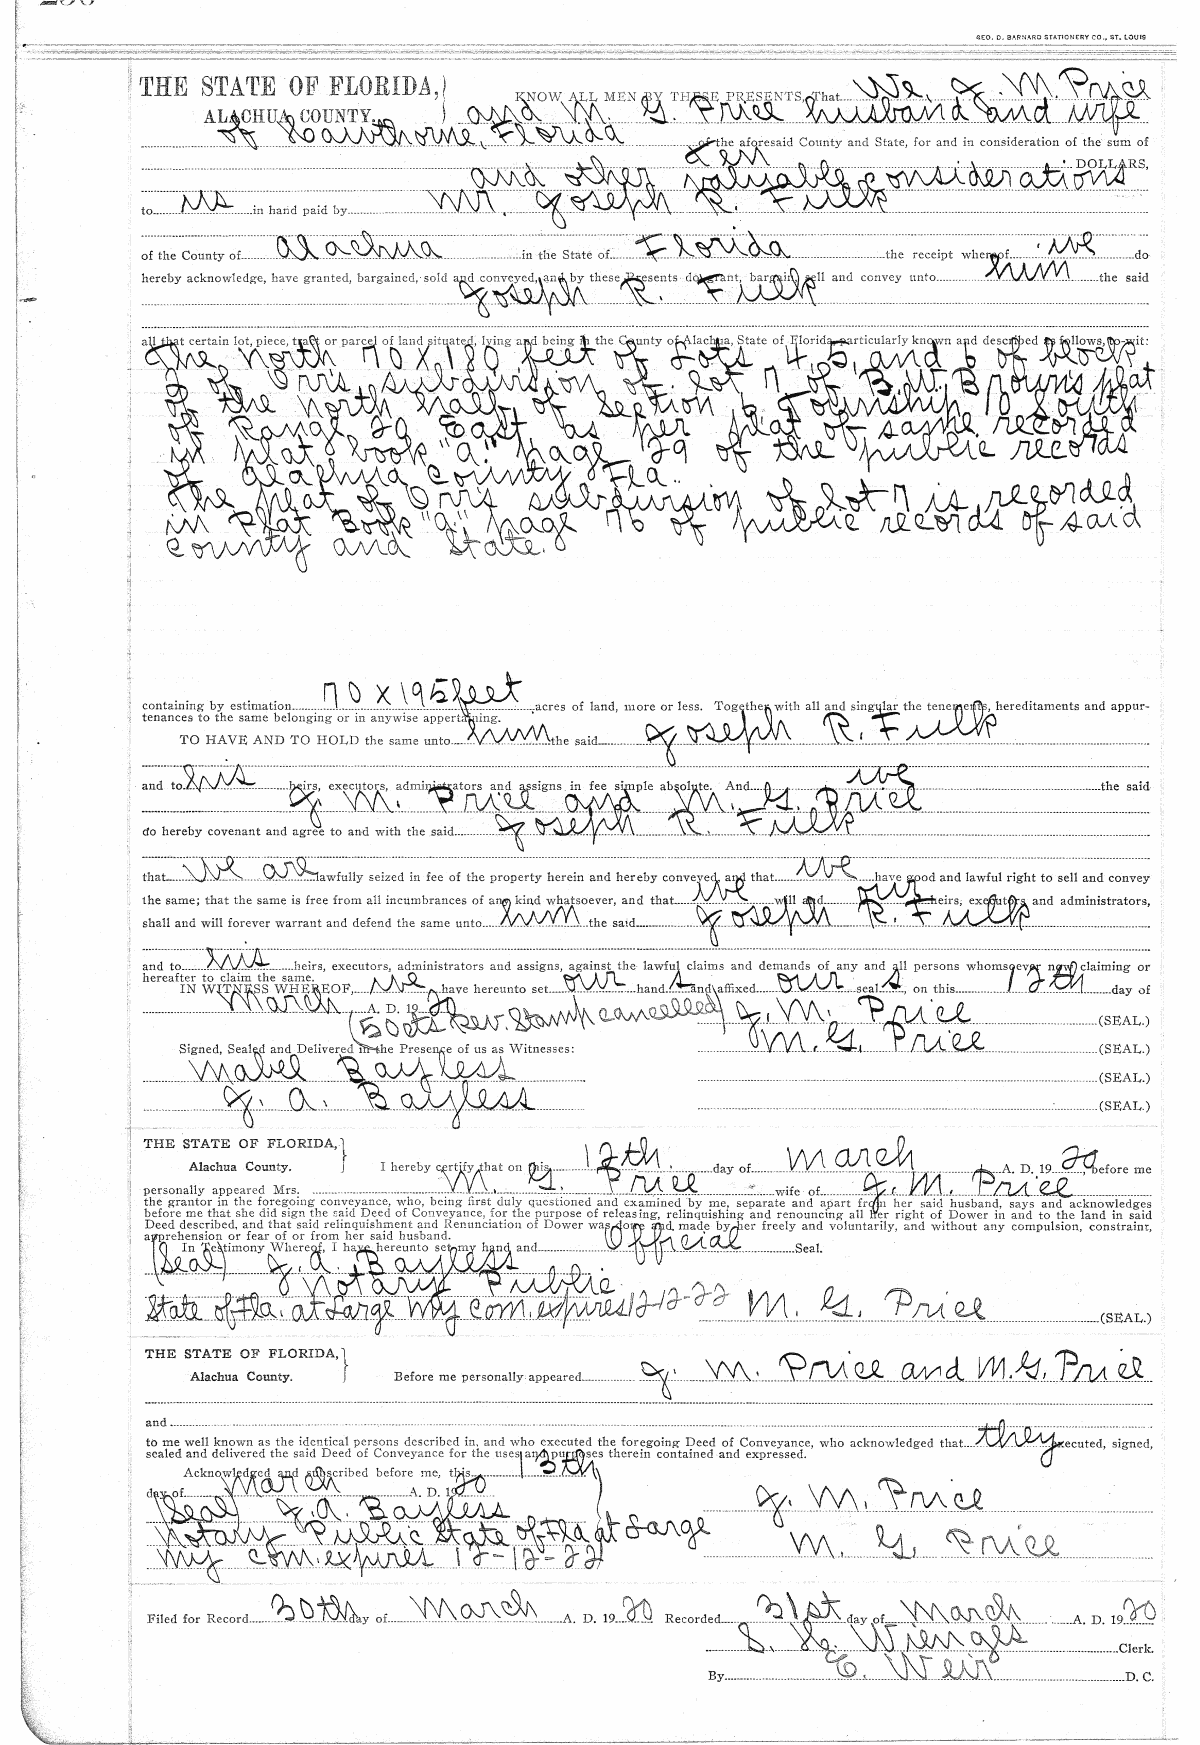 GEO. D. BARNARD STATIONERY CO., ST. LOUIS
THE STATE OF FLORIDA,
ALACHUA COUNTY.
KNOW ALL MEN BY THESE PRESENTS, That We, J. M. Price
and M. G. Price husband and wife
of Hawthorne, Florida of the aforesaid County and State, for and in consideration of the sum of
Ten DOLLARS,
and other valuable considerations
to us in hand paid by Mr. Joseph R. Fulk
of the County of Alachua in the State of Florida the receipt whereof we do
hereby acknowledge, have granted, bargained, sold and conveyed, and by these Presents do grant, bargain, sell and convey unto him the said
Joseph R. Fulk
all that certain lot, piece, tract or parcel of land situated, lying and being in the County of Alachua, State of Florida, particularly known and described as follows, to-wit:
The North 70 X 180 feet of Lots 4, 5, and 6 of block
2 of Orr's subdivision of lot 7 of B.W. Brown's plat
of the north half of Section 6 Township 10 South
of Range 20 East as per plat of same recorded
in plat book "A" page 29 of the public records
of Alachua County Fla.
The plat of Orr's subdivision of lot 7 is recorded
in Plat Book "A," page 76 of public records of said
county and State.
containing by estimation 70 X 195 feet acres of land, more or less. Together with all and singular the tenements, hereditaments and appur-
tenances to the same belonging or in anywise appertaining.
TO HAVE AND TO HOLD the same unto him the said Joseph R. Fulk
and to his heirs, executors, administrators and assigns in fee simple absolute. And we the said
J. M. Price and M. G. Price
do hereby covenant and agree to and with the said Joseph R. Fulk
that we are lawfully seized in fee of the property herein and hereby conveyed, and that we have good and lawful right to sell and convey
the same; that the same is free from all incumbrances of any kind whatsoever, and that we will and our heirs, executors and administrators,
shall and will forever warrant and defend the same unto him the said Joseph R. Fulk
and to his heirs, executors, administrators and assigns, against the lawful claims and demands of any and all persons whomsoever now claiming or
hereafter to claim the same.
IN WITNESS WHEREOF, we have hereunto set our hand s and affixed our seal s, on this 12th day of
March A. D. 19 20
(50cts Rev. Stamp cancelled) J. M. Price (SEAL.)
Signed, Sealed and Delivered in the Presence of us as Witnesses: M. G. Price (SEAL.)
Mabel Bayless (SEAL.)
J. A. Bayless (SEAL.)
THE STATE OF FLORIDA,
Alachua County. I hereby certify that on this 12th day of March A. D. 19 20, before me
personally appeared Mrs. M. G. Price wife of J. M. Price
the grantor in the foregoing conveyance, who, being first duly questioned and examined by me, separate and apart from her said husband, says and acknowledges
before me that she did sign the said Deed of Conveyance, for the purpose of releasing, relinquishing and renouncing all her right of Dower in and to the land in said
Deed described, and that said relinquishment and Renunciation of Dower was done and, made by her freely and voluntarily, and without any compulsion, constraint,
apprehension or fear of or from her said husband.
In Testimony Whereof, I have hereunto set my hand and Official Seal.
(Seal) J. A. Bayless
Notary Public
State of Fla. at Large My com. expires 12-12-22 M. G. Price (SEAL.)
THE STATE OF FLORIDA,
Alachua County. Before me personally appeared J. M. Price and M. G. Price
and
to me well known as the identical persons described in, and who executed the foregoing Deed of Conveyance, who acknowledged that they executed, signed,
sealed and delivered the said Deed of Conveyance for the uses and purposes therein contained and expressed.
Acknowledged and subscribed before me, this 13th
day of March A. D. 19 20
(Seal) J. A. Bayless J. M. Price
Notary Public State of Fla at Large
My com. expires 12-12-22 M. G. Price
Filed for Record 30th day of March A. D. 19 20 Recorded 31st day of March A. D. 19 20
S. H. Wienges Clerk.
By E. Weir D. C.